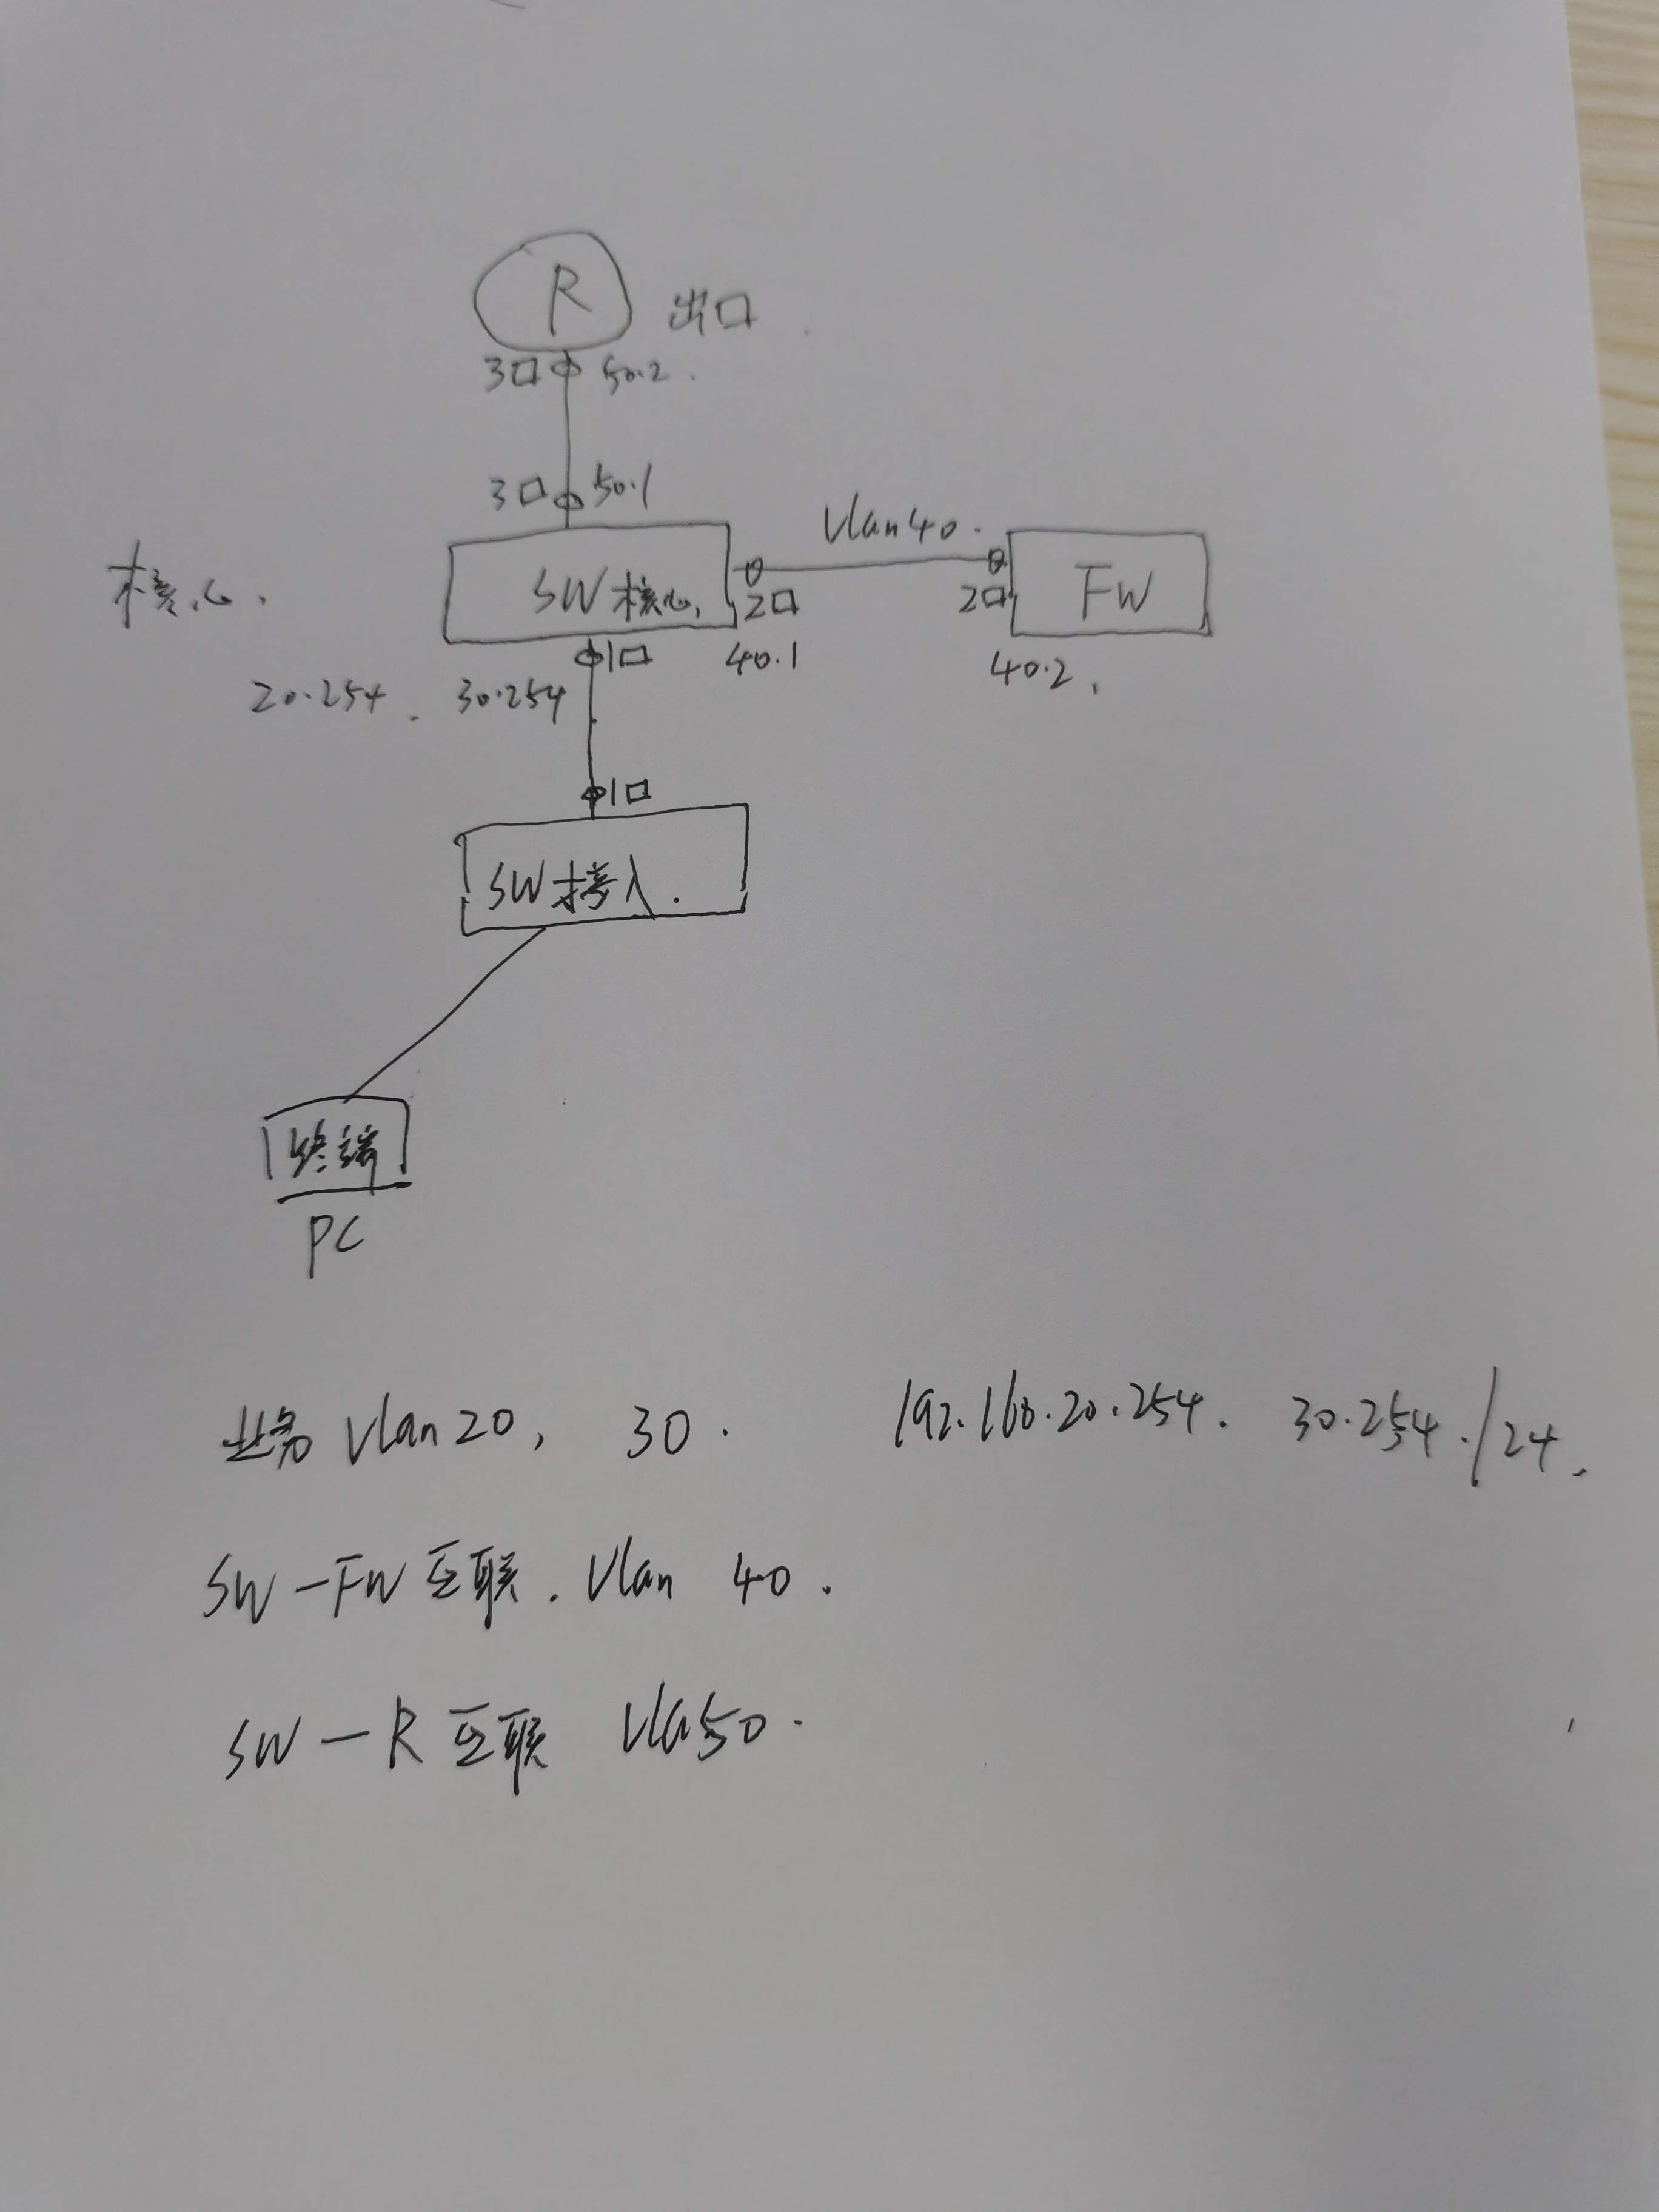 R 出口
3口 50.2.
3口 50.1
Vlan40.
核心.
SW核心.
2口
2口
FW
1口
40.1
40.2.
20.254. 30.254
1口
SW接入.
终端
PC
业务 Vlan20, 30. 192.168.20.254. 30.254./24.
SW-FW 互联. Vlan 40.
SW-R 互联 Vla50.